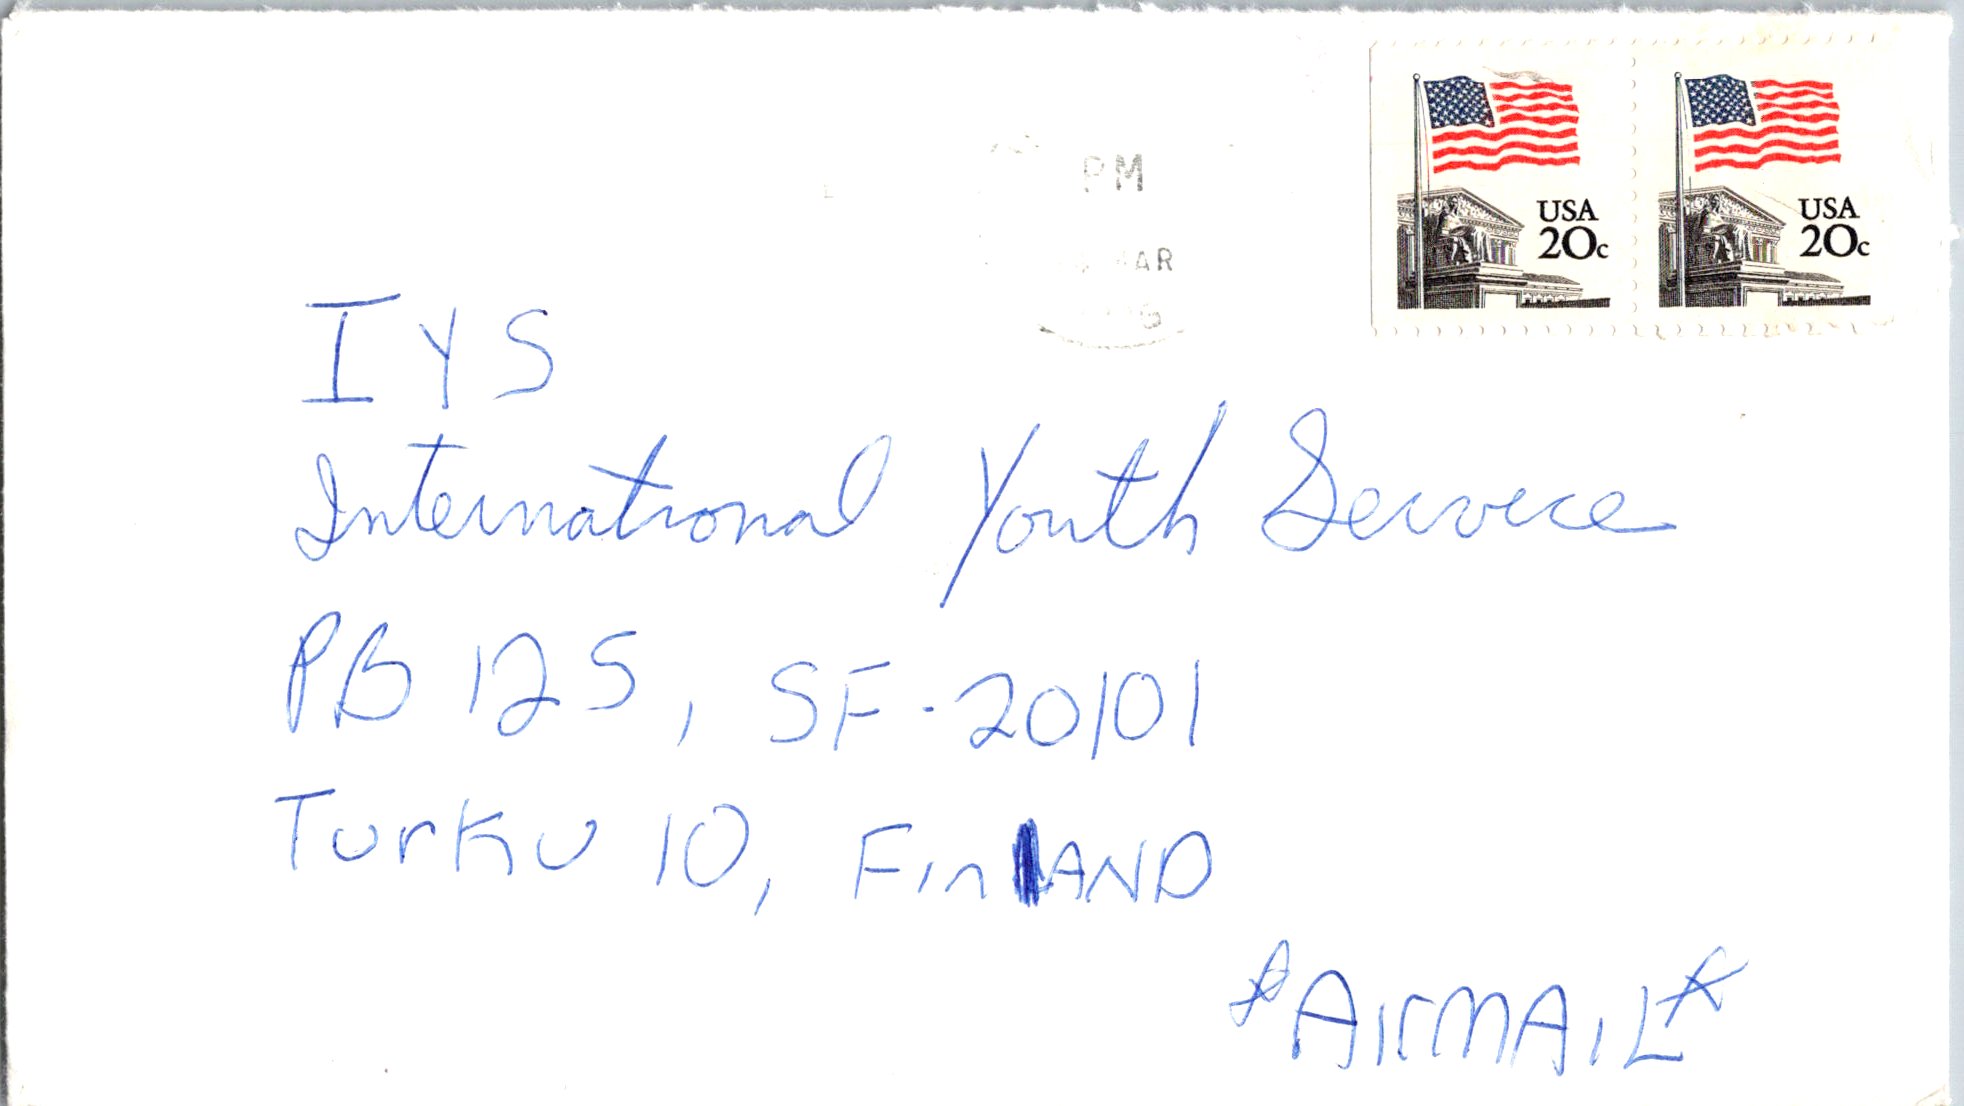 PM
MAR
USA
20c
USA
20c
IYS
International Youth Service
PB 125, SF-20101
Turku 10, FinlAND
*AIrMAIL*